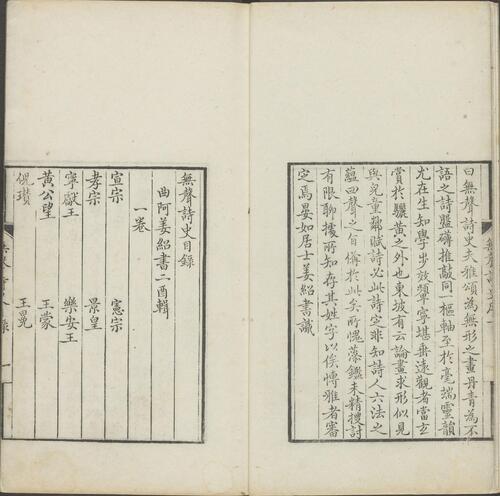 曰無聲詩史夫雅頌為無形之畫丹青為不
語之詩盤礴推敲同一樞軸至於毫端靈韻
尤在生知學步效顰寧堪垂遠觀者當玄
賞於驪黃之外也東坡有云論畫求形似見
與兒童鄰賦詩必此詩定非知詩人六法之
蘊四聲之旨備於此矣所愧藻鑑未精搜討
有限聊據所知存其姓字以俟博雅者審
定焉晏如居士姜紹書識
無聲詩史目錄
曲阿姜紹書二酉輯
一卷
宣宗 憲宗
孝宗 景皇
寧獻王 樂安王
黃公望 王蒙
倪瓚 王冕